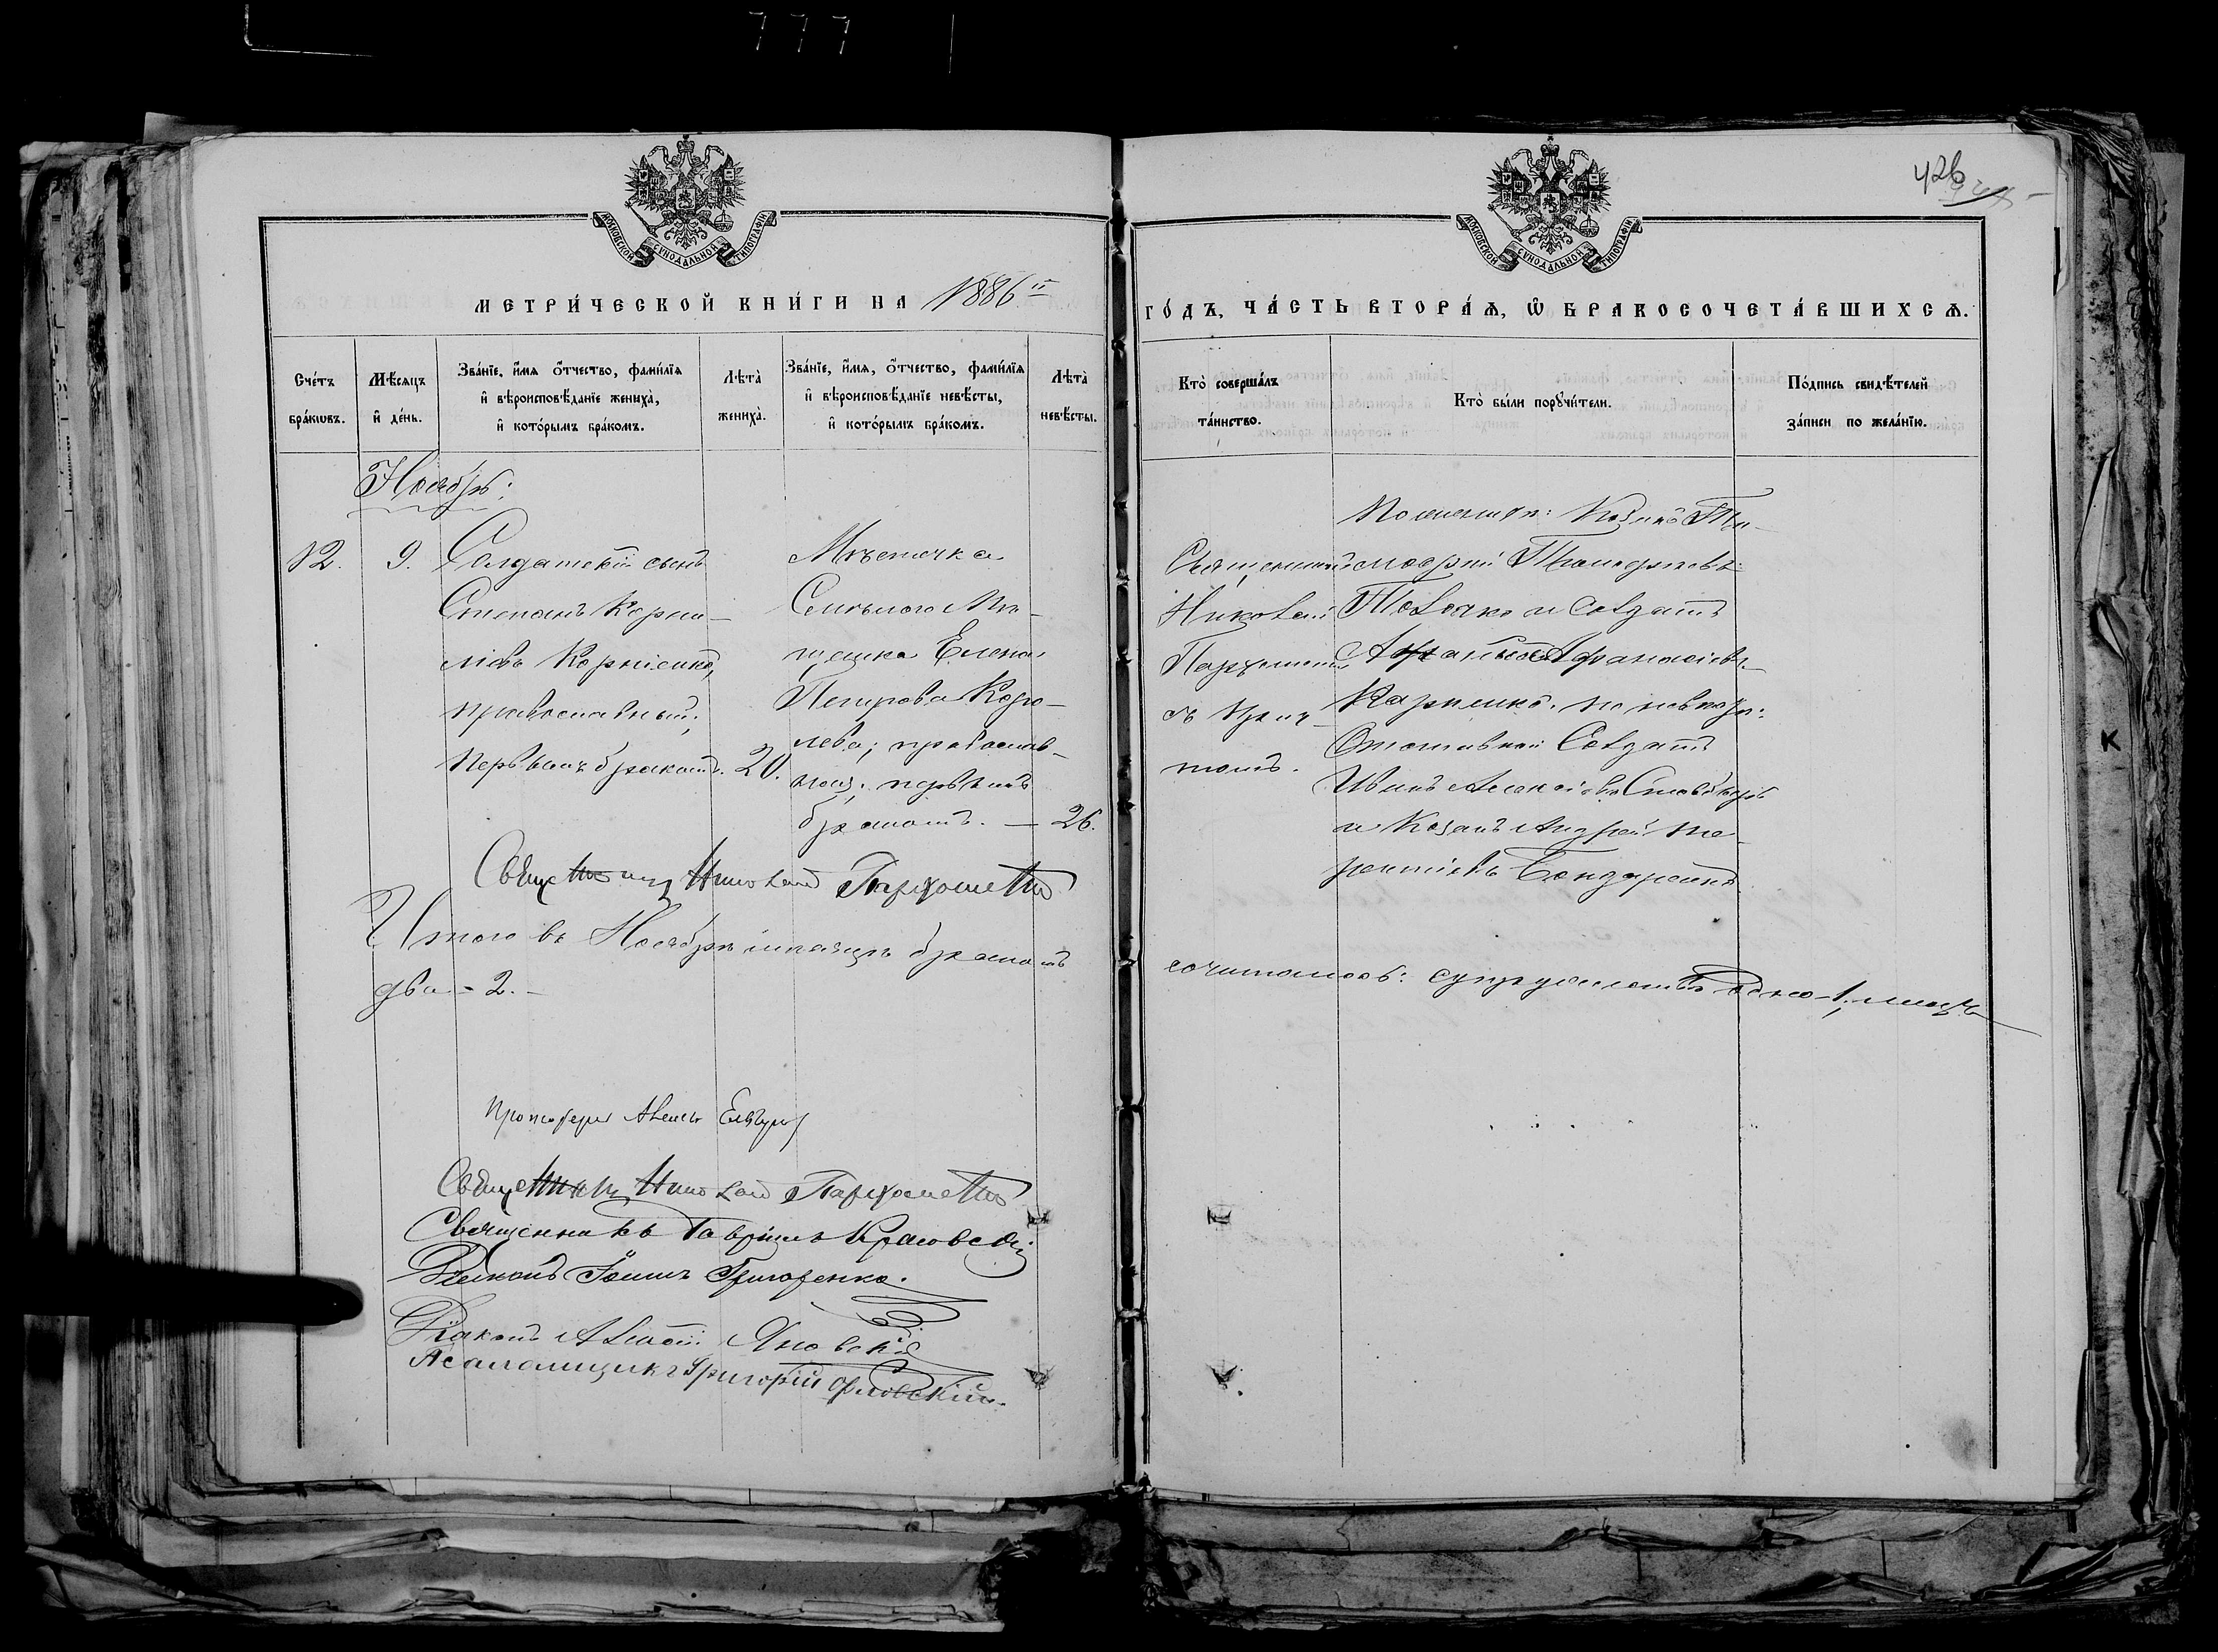 777
426
МОСКОВСКОЙ СѴНОДАЛЬНОЙ ТИПОГРАФІИ
МОСКОВСКОЙ СѴНОДАЛЬНОЙ ТИПОГРАФІИ
МЕТРИ́ЧЕСКОЙ КНИ́ГИ НА 1886й
ГО́ДЪ, ЧА́СТЬ ВТОРА́Ѧ, Ѽ БРАКОСОЧЕТА́ВШИХСѦ.
Сче́тъ бра́кѡвъ.
Мѣ́сѧцъ и҆ де́нь.
Зва́нїе, и҆́мѧ ѻ҆́тчество, фами́лїѧ
и҆ вѣроисповѣ́данїе жениха̀,
и҆ кото́рымъ бра́комъ.
Лѣта̀ жениха̀.
Зва́нїе, и҆́мѧ, ѻ҆́тчество, фами́лїѧ
и҆ вѣроисповѣ́данїе невѣ́сты,
и҆ кото́рымъ бра́комъ.
Лѣта̀ невѣ́сты.
Кто̀ соверша́лъ
та́инство.
Кто̀ бы́ли порꙋчи́тели.
По́дпись свидѣ́телей
за́писи по жела́нїю.
Ноябрь:
12.
9.
Солдатскій сынъ
Степанъ Корни-
ліевъ Корніенко,
православный;
первымъ бракомъ.
20.
Мѣщанка
Елена
Петрова Коро-
лева; православ-
ная; первымъ
бракомъ. —
26.
Священникъ
Николай
Пархоменко
съ прич-
томъ.
По женихѣ: Козакъ Ти-
моѳей
и Солдатъ
Афанасіевъ
Карпенко. по невѣстѣ:
Отставной Солдатъ
Иванъ
и Козакъ Андрей Те-
рентіевъ Бондаренко
Священникъ Николай Пархоменко
Итого въ Ноябрѣ мѣсяцѣ бракомъ
два - 2. -
сочиталось: супружество одно - 1, лицъ
Протоіерей
Священникъ Николай Пархоменко
Священникъ Гавріилъ Красовскій
Діаконъ Іоаннъ Григоренко.
Діаконъ Яновскій
Псаломщикъ Григорій Орловскій.
К